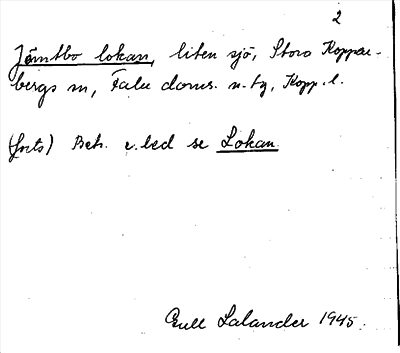 2
Jämtbo lokan, liten sjö, Stora Koppar-
bergs sn, Falu doms. n. tg, Kopp. l.
(forts) Beh. s. led se Lokan
Gull Lalander 1945.